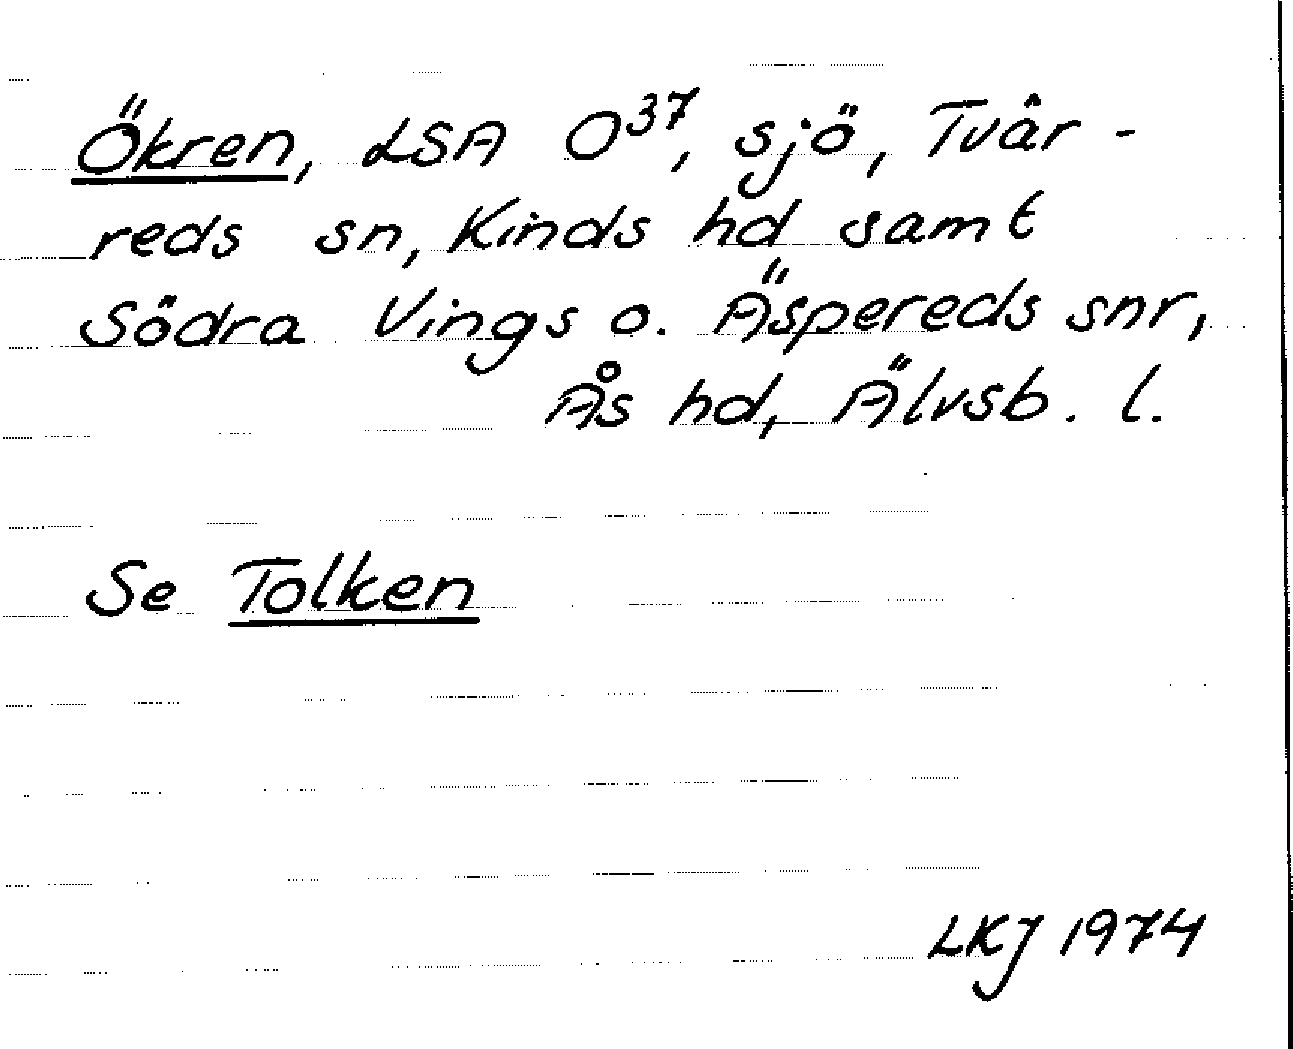 Ökren, LSA O37, sjö, Tvär-
reds sn, Kinds hd samt
Södra Vings o. Äspereds snr,
Ås hd, Älvsb. l.
Se Tolken
LKJ 1974